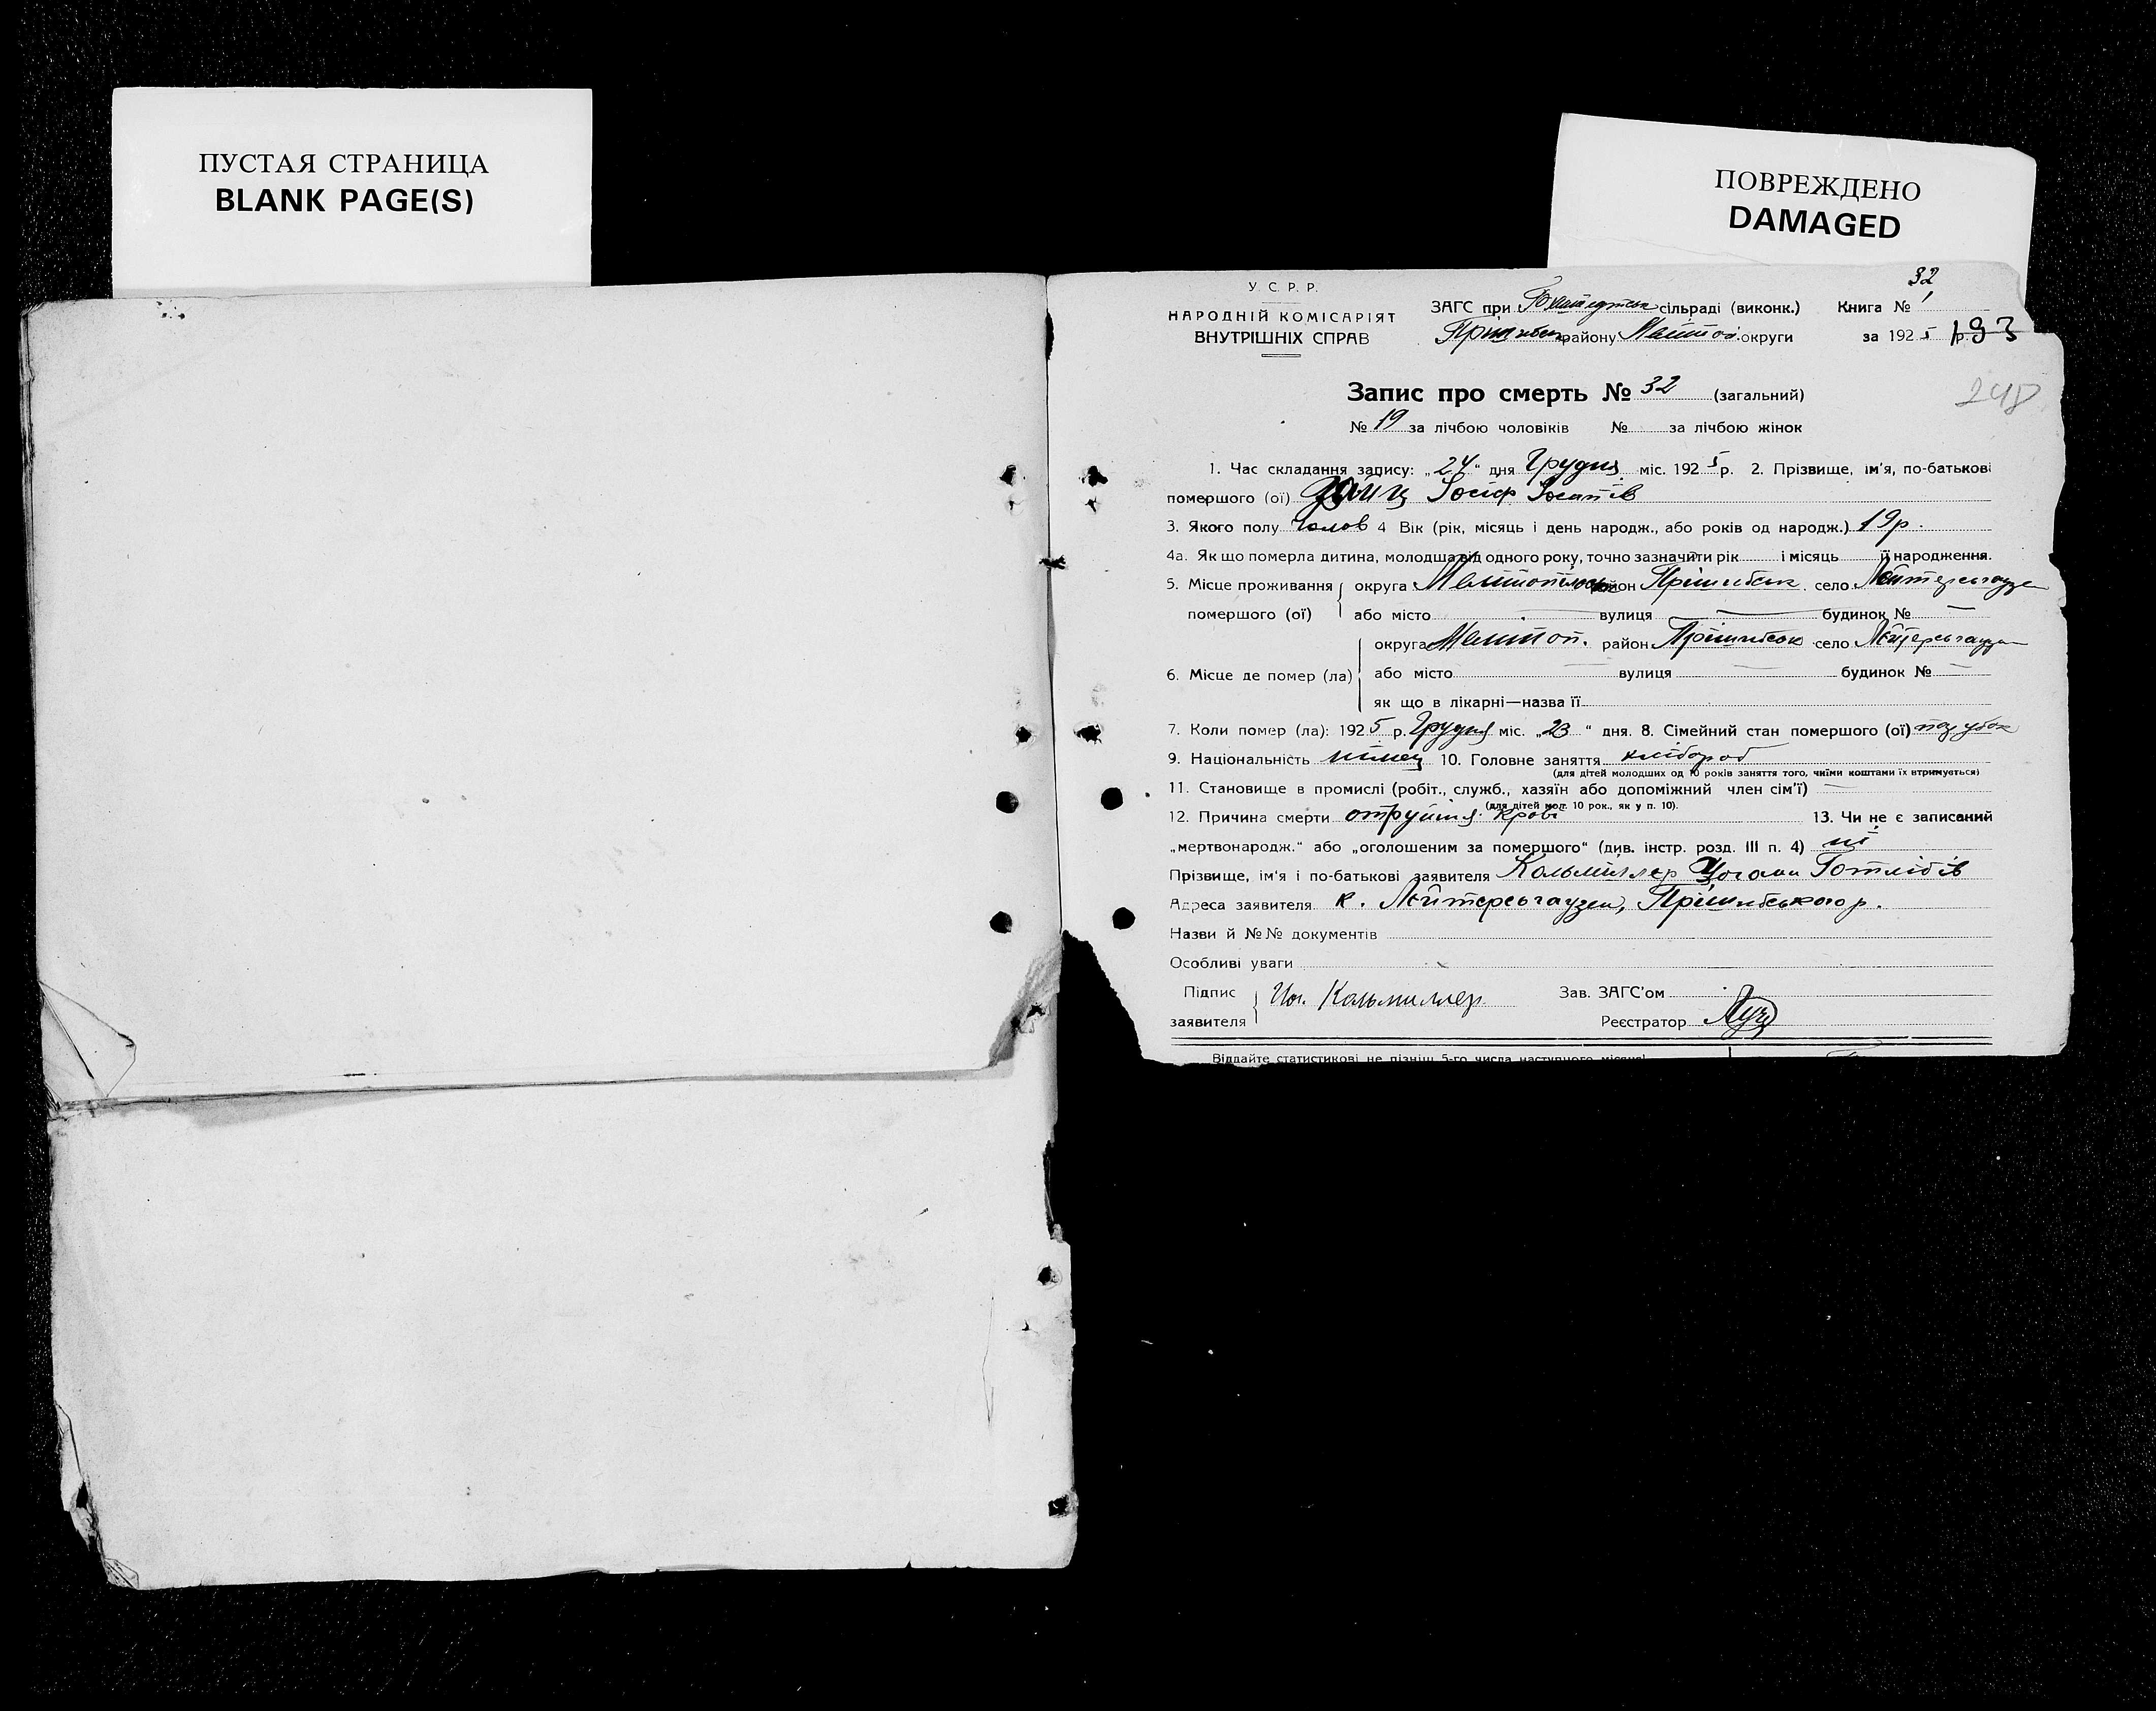 ПУСТАЯ СТРАНИЦА
BLANK PAGE(S)
ПОВРЕЖДЕНО
DAMAGED
32
У. С. Р. Р.
НАРОДНІЙ КОМІСАРІЯТ
ВНУТРІШНІХ СПРАВ
ЗАГС при сільраді (виконк.) Книга № 1
району округи за 1925 р. 193
Запис про смерть № 32 (загальний)
248
№ 19 за лічбою чоловіків № за лічбою жінок
1. Час складання запису: „24" дня Грудня міс. 1925 р. 2. Прізвище, ім'я, по-батькові
помершого (ої) Іосиф
3. Якого полу чолов 4 Вік (рік, місяць і день народж., або років од народж.) 19 р.
4а. Як що померла дитина, молодша від одного року, точно зазначити рік і місяць її народження.
5. Місце проживання округа район Пришибськ. село Лейтерсьгаузен
помершого (ої) або місто вулиця будинок №
округа Мелитоп. район Пришибськ село Лейтерсьгаузен
6. Місце де помер (ла) або місто вулиця будинок №
як що в лікарні—назва її
7. Коли помер (ла): 1925 р. Грудня міс. „23" дня. 8. Сімейний стан помершого (ої) парубок
9. Національність німец 10. Головне заняття хлібороб
(для дітей молодших од 10 років заняття того, чиїми коштами їх втримується)
11. Становище в промислі (робіт., служб., хазяїн або допоміжний член сім'ї)
(для дітей мол. 10 рок., як у п. 10).
12. Причина смерти отруіння крові 13. Чи не є записаний
„мертвонародж." або „оголошеним за помершого" (див. інстр. розд. III п. 4) ні
Прізвище, ім'я і по-батькові заявителя Кольміллер Йоганн Готлібів
Адреса заявителя к. Лейтерсьгаузен, Пришибського р.
Назви й №№ документів
Особливі уваги
Підпис Іог. Кольмиллер Зав. ЗАГС'ом
заявителя Реєстратор
Віддайте статистикові не пізніш 5-го числа наступного місяця!